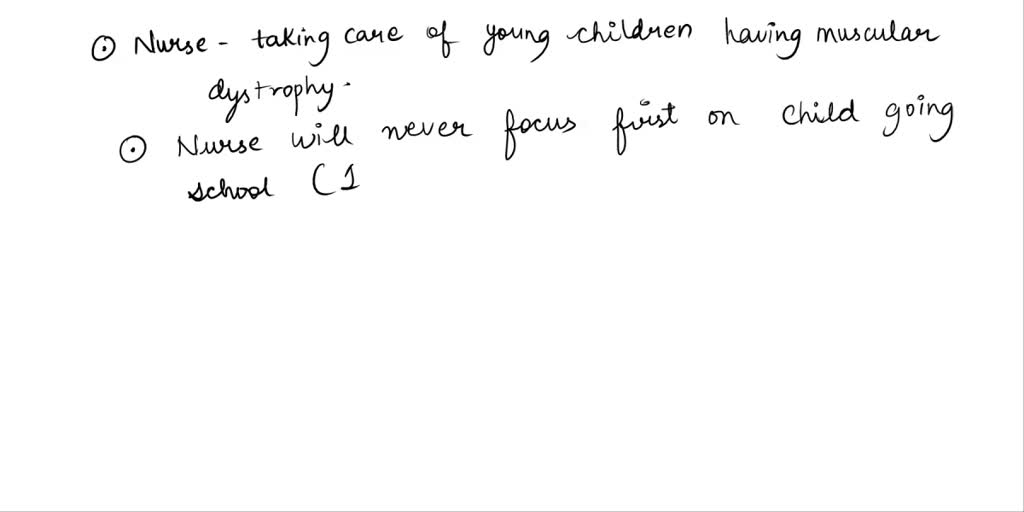 ⊙ Nurse - taking care of young children having muscular
dystrophy.
⊙ Nurse will never focus first on child going
school (1